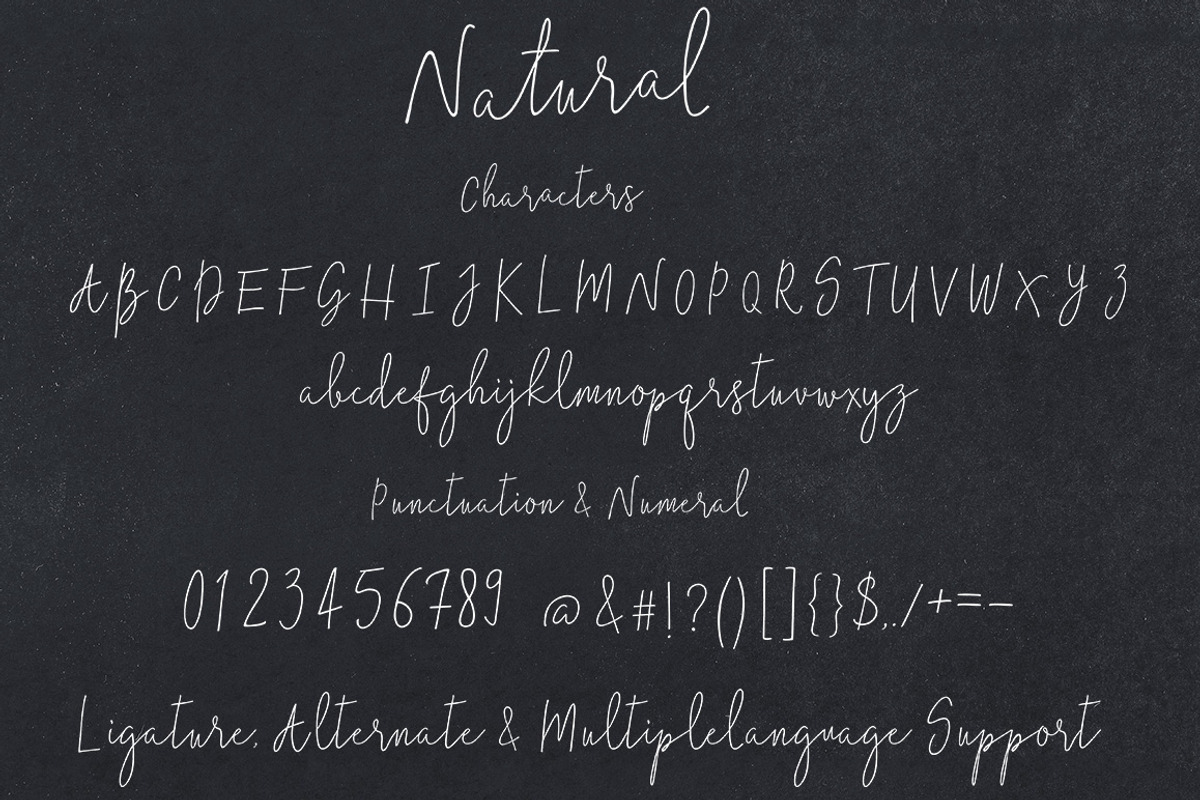 Natural
Characters
ABCDEFGHIJKLMNOPQRSTUVWXYZ
abcdefghijklmnopqrstuvwxyz
Punctuation & Numeral
0123456789 @&#!?()[]{}$,./+=-
Ligature, Alternate & Multiplelanguage Support